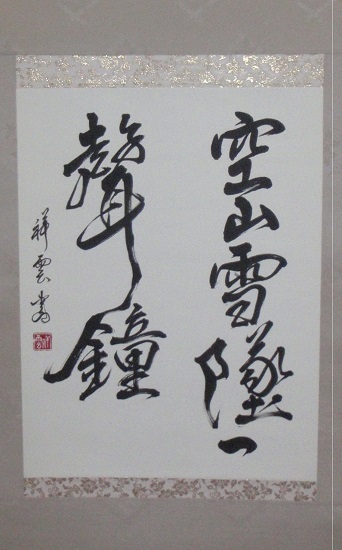 空山雪墜一
聲鐘
祥雲書